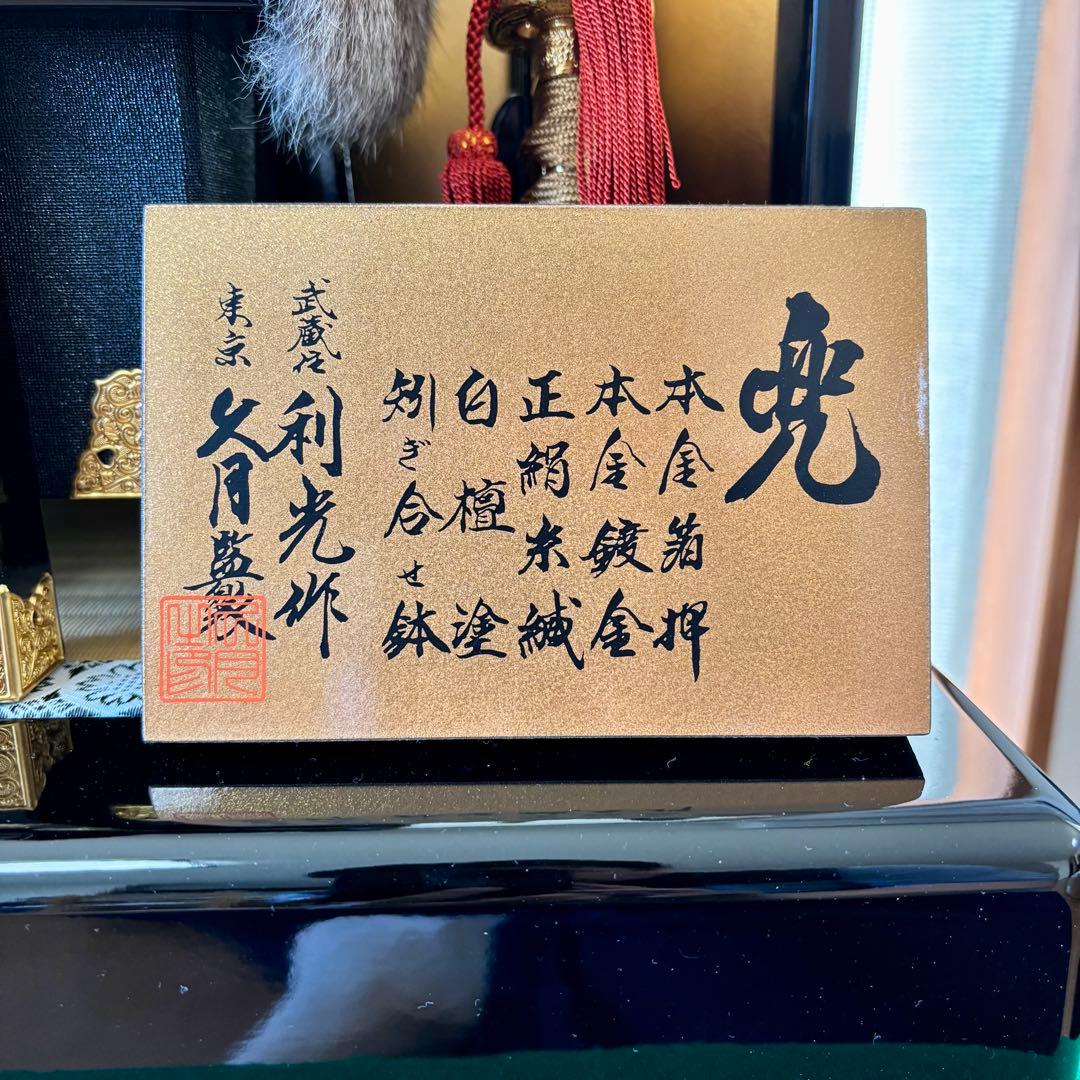 兜
本金箔押
本金鍍金
正絹糸縅
白檀塗
矧ぎ合せ鉢
武蔵住 利光作
東京 久月監製